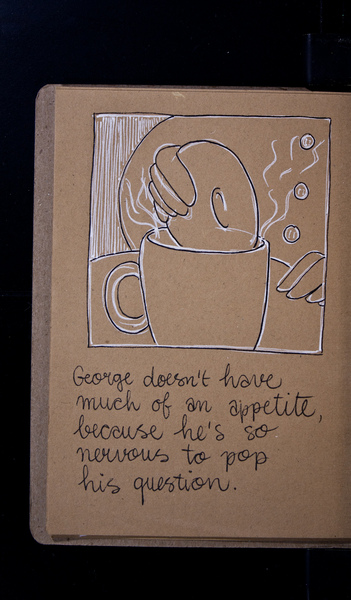 George doesn't have
much of an appetite,
because he's so
nervous to pop
his question.